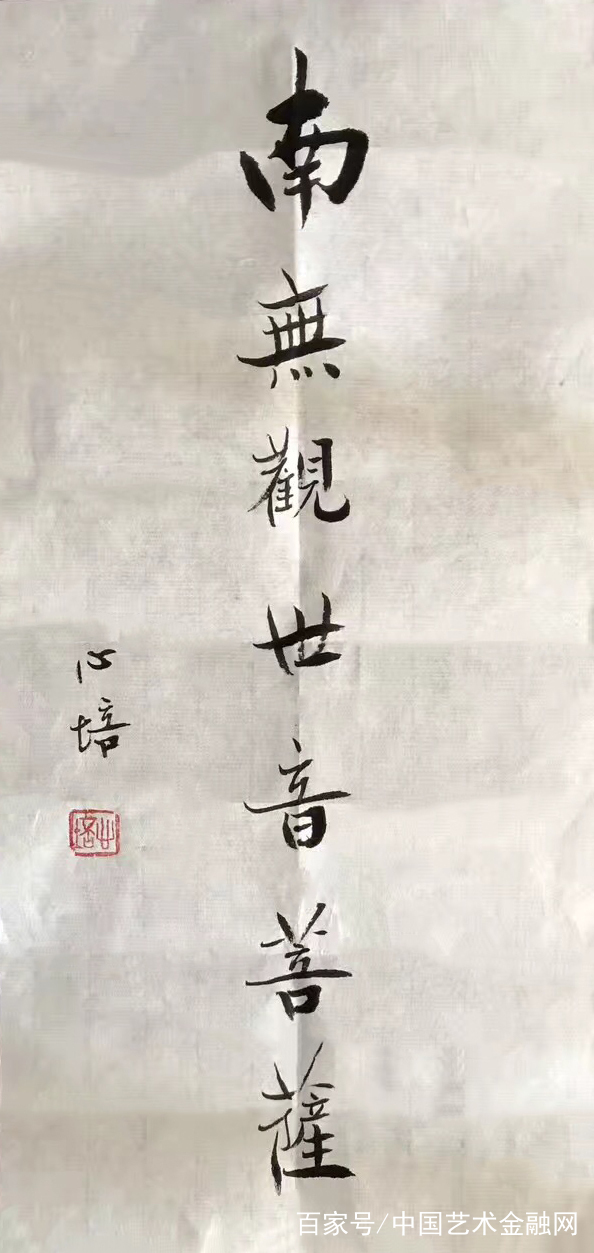 南無觀世音菩薩
心培
心培
百家号/中国艺术金融网